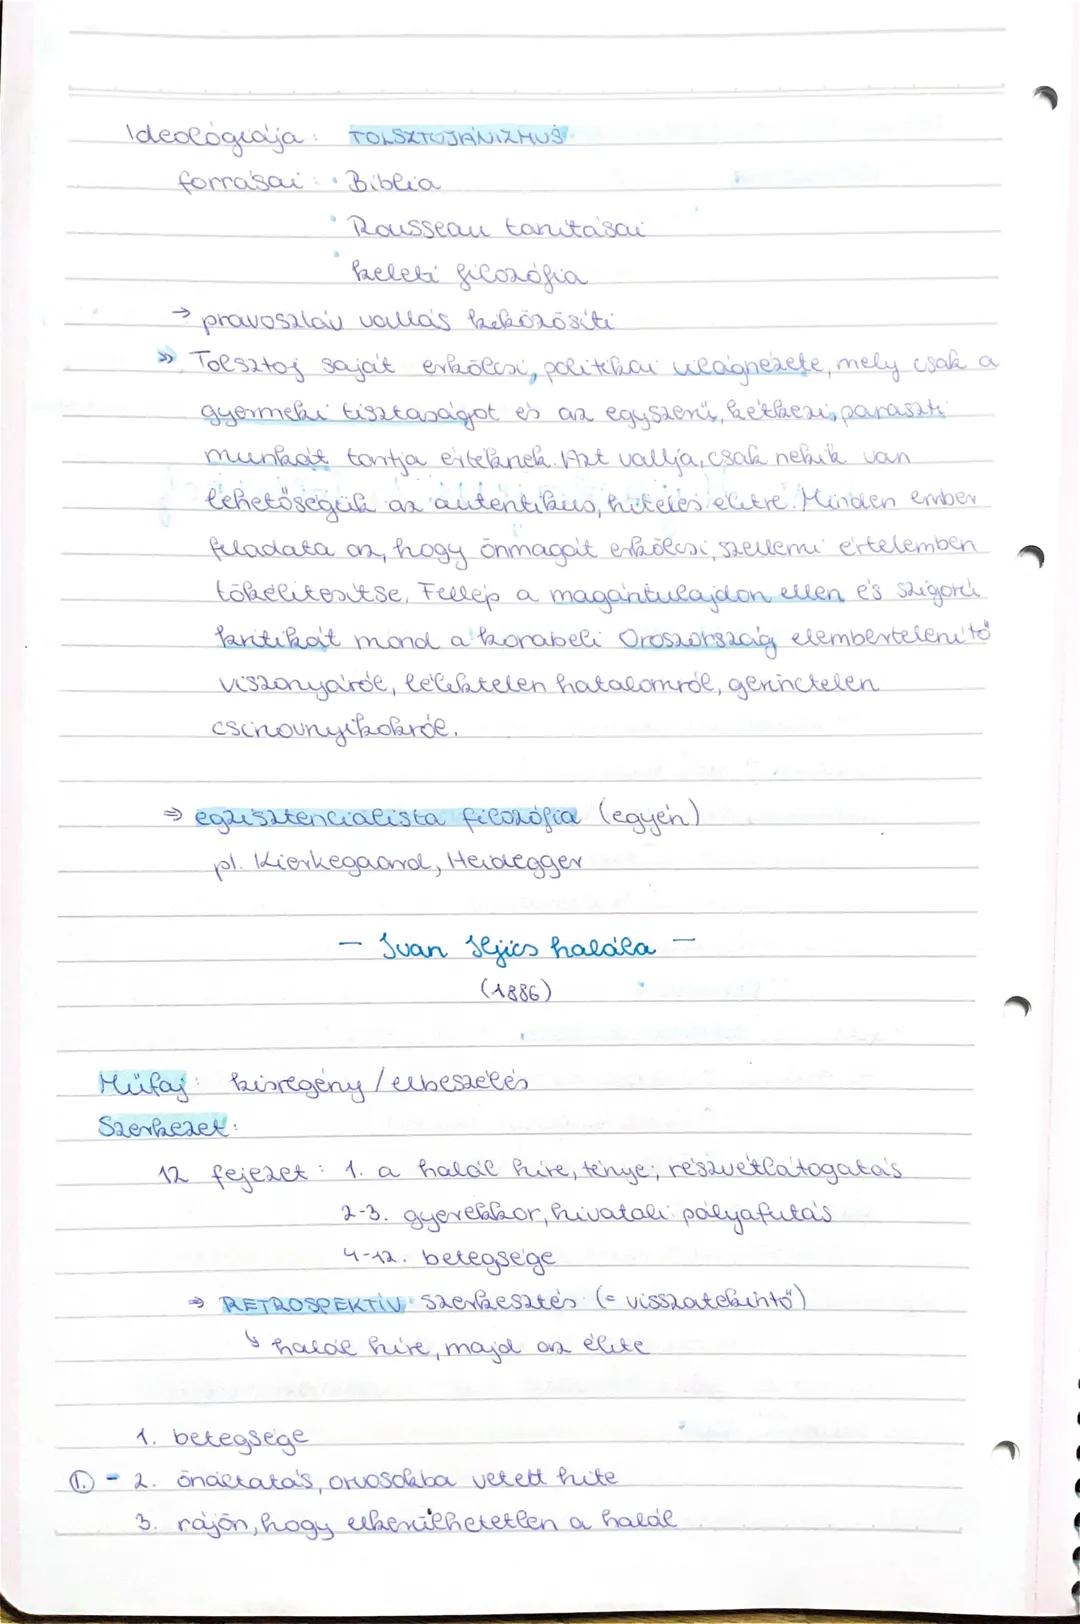 Ideológiája: TOLSZTOJÁNIZMUS
forrásai: • Biblia
• Rousseau tanításai
• keleti filozófia
→ pravoszláv vallás kiközösíti
» Tolsztoj saját erkölcsi, politikai világnézete, mely csak a
gyermeki tisztaságot és az egyszerű, kétkezi, paraszti
munkát tartja értéknek. Azt vallja, csak nekik van
lehetőségük az autentikus, hiteles életre. Minden ember
feladata az, hogy önmagát erkölcsi, szellemi értelemben
tökéletesítse. Fellép a magántulajdon ellen és szigorú
kritikát mond a korabeli Oroszország elembertelenítő
viszonyáról, lélektelen hatalomról, gerinctelen
csinovnyikokról.
⇒ egzisztencialista filozófia (egyén)
pl. Kierkegaard, Heidegger
- Ivan Iljics halála -
(1886)
Műfaj: kisregény / elbeszélés
Szerkezet:
12 fejezet: 1. a halál híre, ténye; részvétlátogatás
2-3. gyerekkor, hivatali pályafutás
4-12. betegsége
⇒ RETROSPEKTÍV szerkesztés (= visszatekintő)
↳ halál híre, majd az élete
1. betegsége
①. - 2. önáltatás, orvosokba vetett hite
3. rájön, hogy elkerülhetetlen a halál